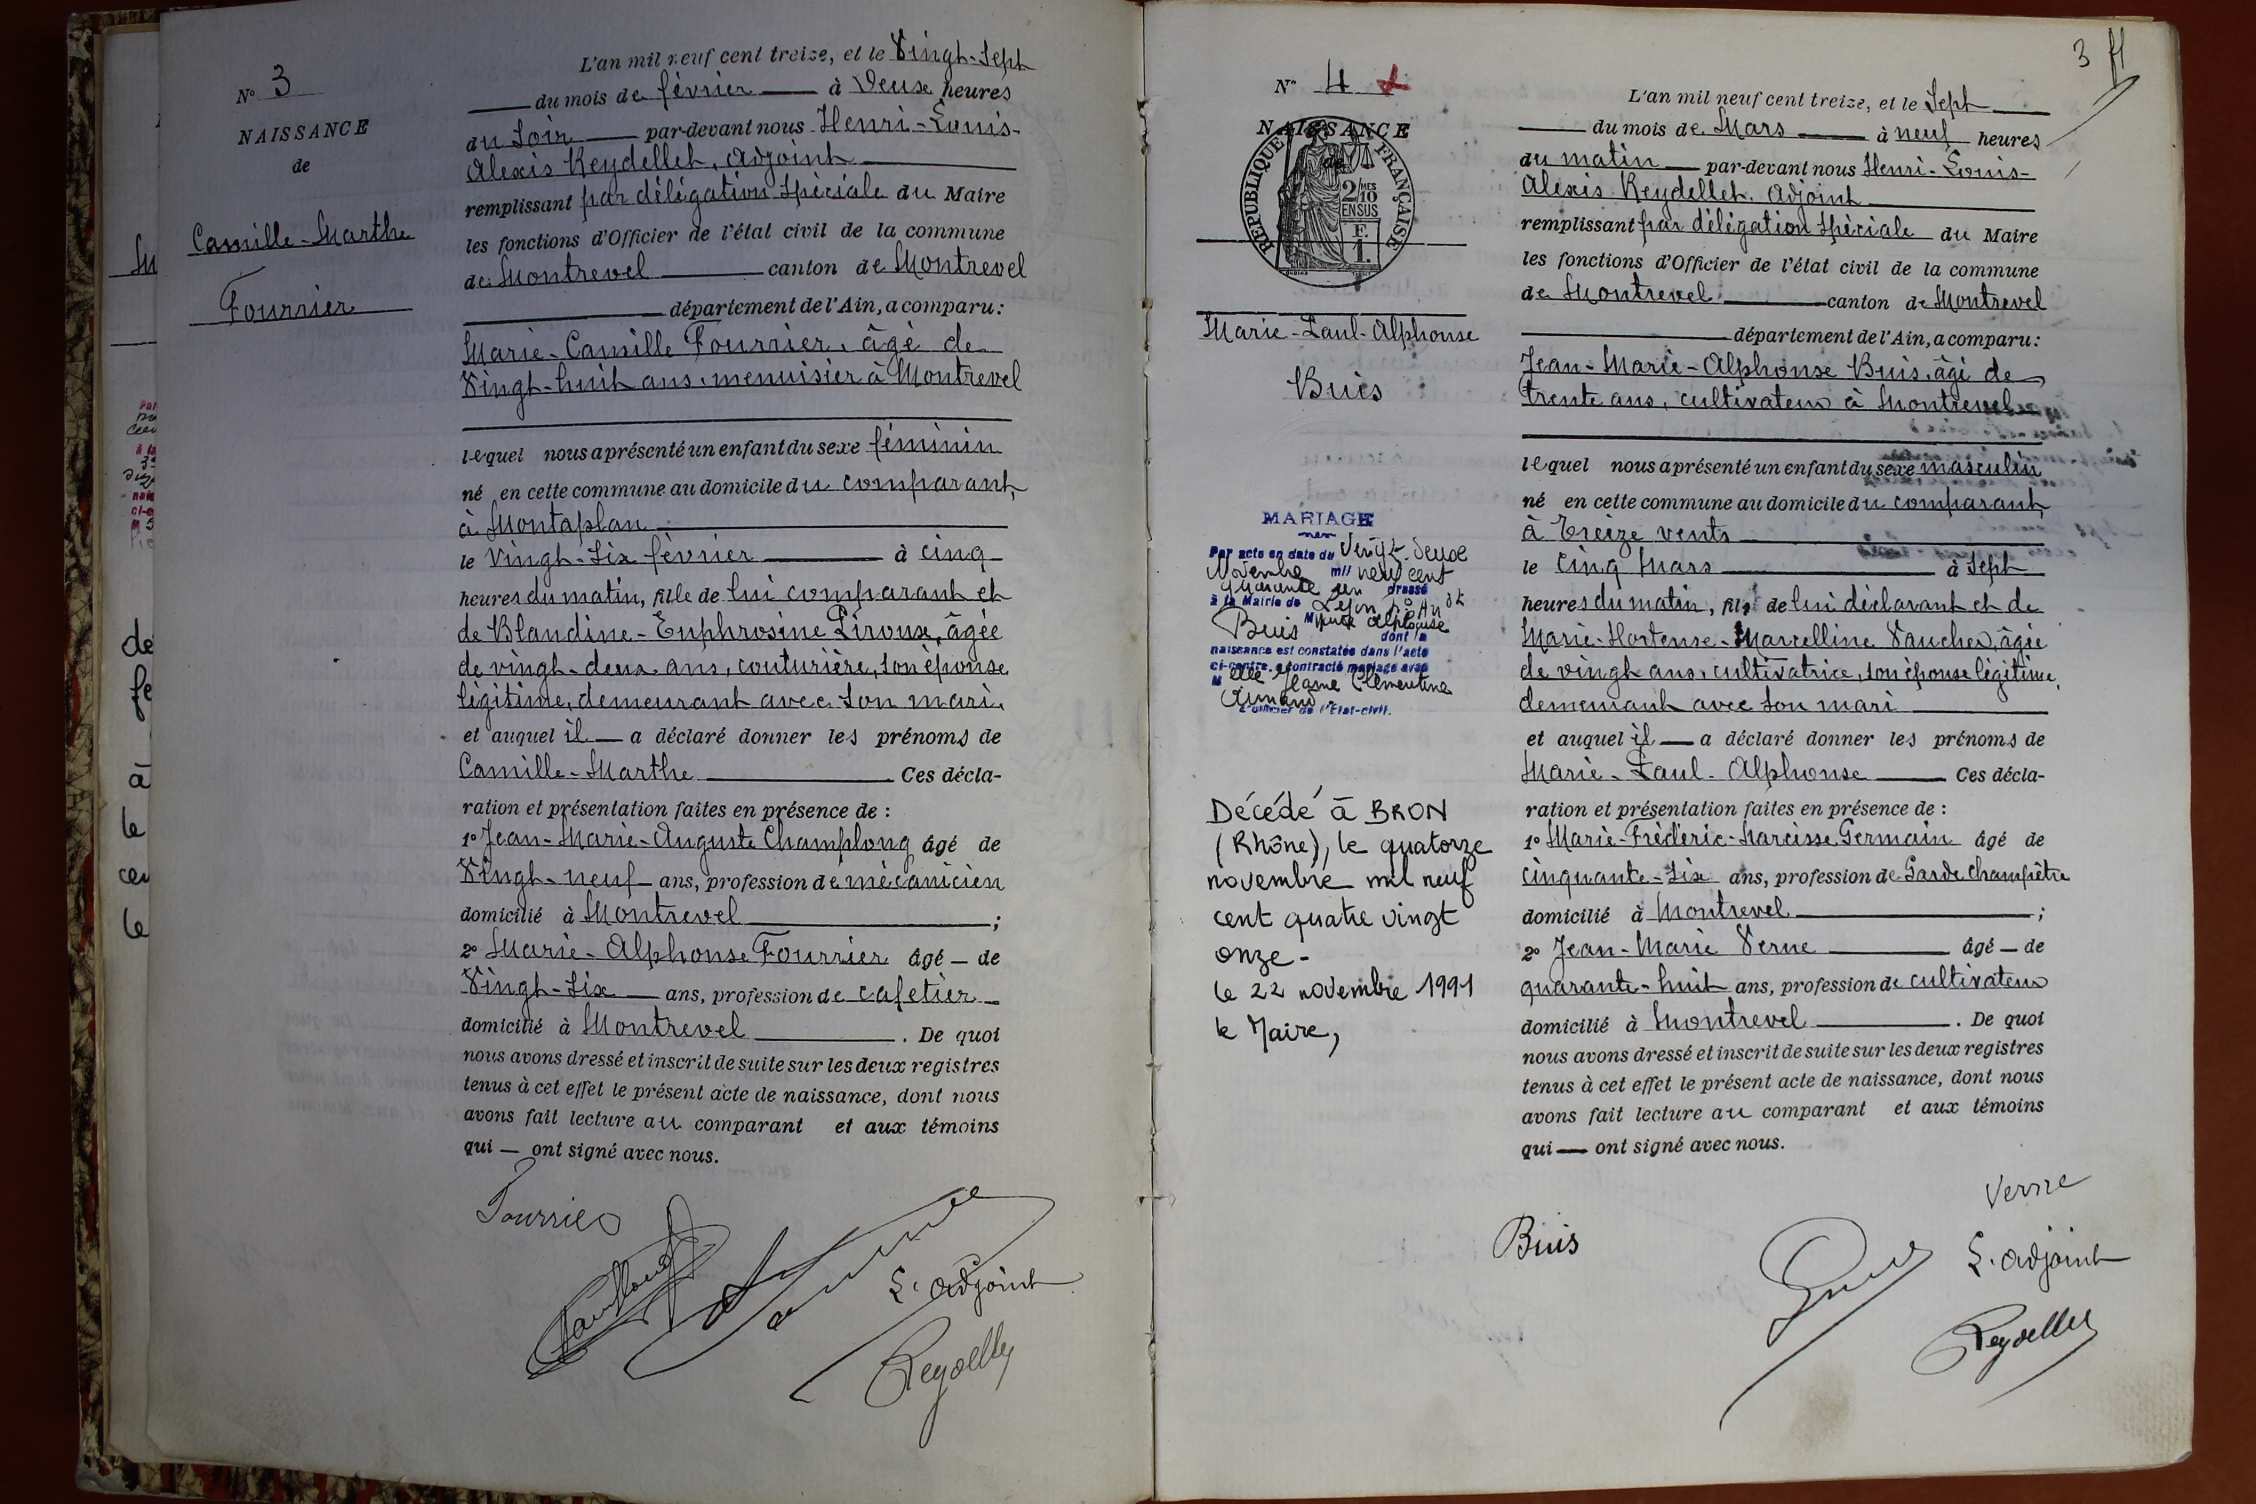 N° 3
NAISSANCE
de
Camille-Marthe
Fourrier
L'an mil neuf cent treize, et le Vingt-Sept
du mois de février à Deux heures
du Soir par-devant nous Henri-Louis-
Alexis Reydellet, Adjoint
remplissant par délégation spéciale du Maire
les fonctions d'Officier de l'état civil de la commune
de Montrevel canton de Montrevel
département de l'Ain, a comparu:
Marie-Camille Fourrier, âgé de
Vingt-huit ans, menuisier à Montrevel
lequel nous a présenté un enfant du sexe féminin
né en cette commune au domicile du comparant,
à Montaplan
le Vingt-Six février à cinq
heures du matin, fille de lui comparant et
de Blandine-Euphrosine Piroux, âgée
de vingt-deux ans, couturière, son épouse
légitime, demeurant avec son mari,
et auquel il a déclaré donner les prénoms de
Camille-Marthe Ces décla-
ration et présentation faites en présence de :
1° Jean-Marie-Auguste Champlong âgé de
Vingt-neuf ans, profession de mécanicien
domicilié à Montrevel ;
2° Marie-Alphonse Fourrier âgé de
Vingt-Six ans, profession de cafetier
domicilié à Montrevel . De quoi
nous avons dressé et inscrit de suite sur les deux registres
tenus à cet effet le présent acte de naissance, dont nous
avons fait lecture au comparant et aux témoins
qui ont signé avec nous.
Fourrier
L'adjoint
Reydellet
3
N° 4
NAISSANCE
de
RÉPUBLIQUE FRANÇAISE
2/MES
10
EN SUS
F.
1.
Marie-Paul-Alphonse
Buis
MARIAGE
Par acte en date du Vingt-deux
Novembre mil neuf cent
quarante un dressé
à la Mairie de Lyon
Buis Alphonse
dont la
naissance est constatée dans l'acte
ci-contre, a contracté mariage avec
M elle Jeanne Clémentine
Armand
L'officier de l'État-civil.
Décédé à BRON
(Rhône), le quatorze
novembre mil neuf
cent quatre vingt
onze -
le 22 novembre 1991
le Maire,
L'an mil neuf cent treize, et le Sept
du mois de Mars à neuf heures
du matin par-devant nous Henri-Louis-
Alexis Reydellet, Adjoint
remplissant par délégation spéciale du Maire
les fonctions d'Officier de l'état civil de la commune
de Montrevel canton de Montrevel
département de l'Ain, a comparu:
Jean-Marie-Alphonse Buis, âgé de
trente ans, cultivateur à Montrevel
lequel nous a présenté un enfant du sexe masculin
né en cette commune au domicile du comparant,
à Treize vents
le Cinq Mars à Sept
heures du matin, fils de lui déclarant et de
Marie-Hortense-Marcelline Vaucher, âgée
de vingt ans, cultivatrice, son épouse légitime,
demeurant avec son mari
et auquel il a déclaré donner les prénoms de
Marie-Paul-Alphonse Ces décla-
ration et présentation faites en présence de :
1° Marie-Fréderic-Narcisse Germain âgé de
cinquante-Six ans, profession de Garde Champêtre
domicilié à Montrevel ;
2° Jean-Marie Verne âgé de
quarante-huit ans, profession de cultivateur
domicilié à Montrevel . De quoi
nous avons dressé et inscrit de suite sur les deux registres
tenus à cet effet le présent acte de naissance, dont nous
avons fait lecture au comparant et aux témoins
qui ont signé avec nous.
Verne
Buis
L'adjoint
Reydellet